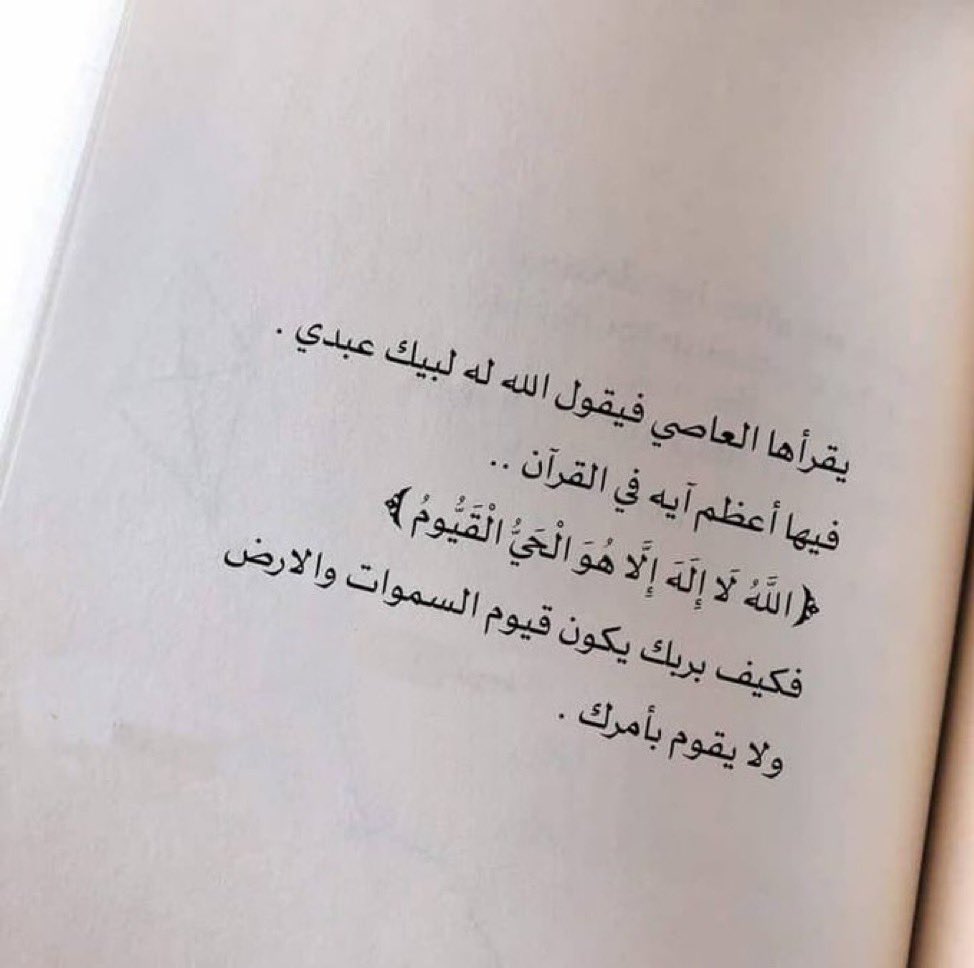 يقرأها العاصي فيقول الله له لبيك عبدي .
فيها أعظم آيه في القرآن ..
﴿اللَّهُ لَا إِلَهَ إِلَّا هُوَ الْحَيُّ الْقَيُّومُ﴾
فكيف بربك يكون قيوم السموات والارض
ولا يقوم بأمرك .